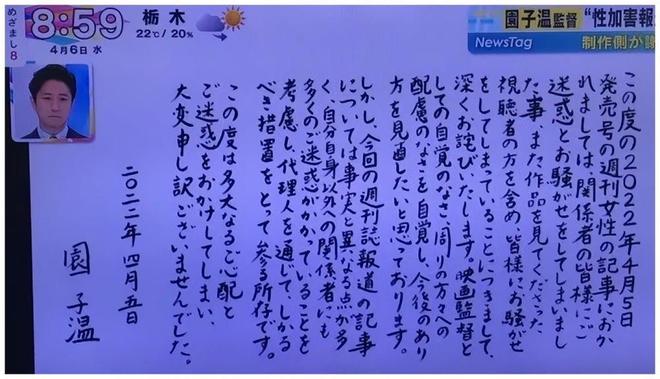 めざまし8
8:59
4月6日 水
栃木
22℃/20%
園子温監督 “性加害報
NewsTag
制作側が謝
この度の2022年4月5日
発売号の週刊女性の記事におか
れましては、関係者の皆様にご
迷惑とお騒がせをしてしまいまし
た事、また作品を見てくださった
視聴者の方を含め、皆様にお騒がせ
をしてしまっていることにつきまして、
深くお詫びいたします。映画監督と
しての自覚のなさ、周りの方々への
配慮のなさを自覚し、今後のあり
方を見直したいと思っております。
しかし、今回の週刊誌報道の記事
については事実と異なる点が多
く、自分自身以外への関係者にも
多くのご迷惑がかかっていることを
考慮し、代理人を通じて、しかる
べき措置をとって参る所存です。
この度は多大なるご心配と
ご迷惑をおかけしてしまい、
大変申し訳ございませんでした。
二〇二二年四月五日
園子温